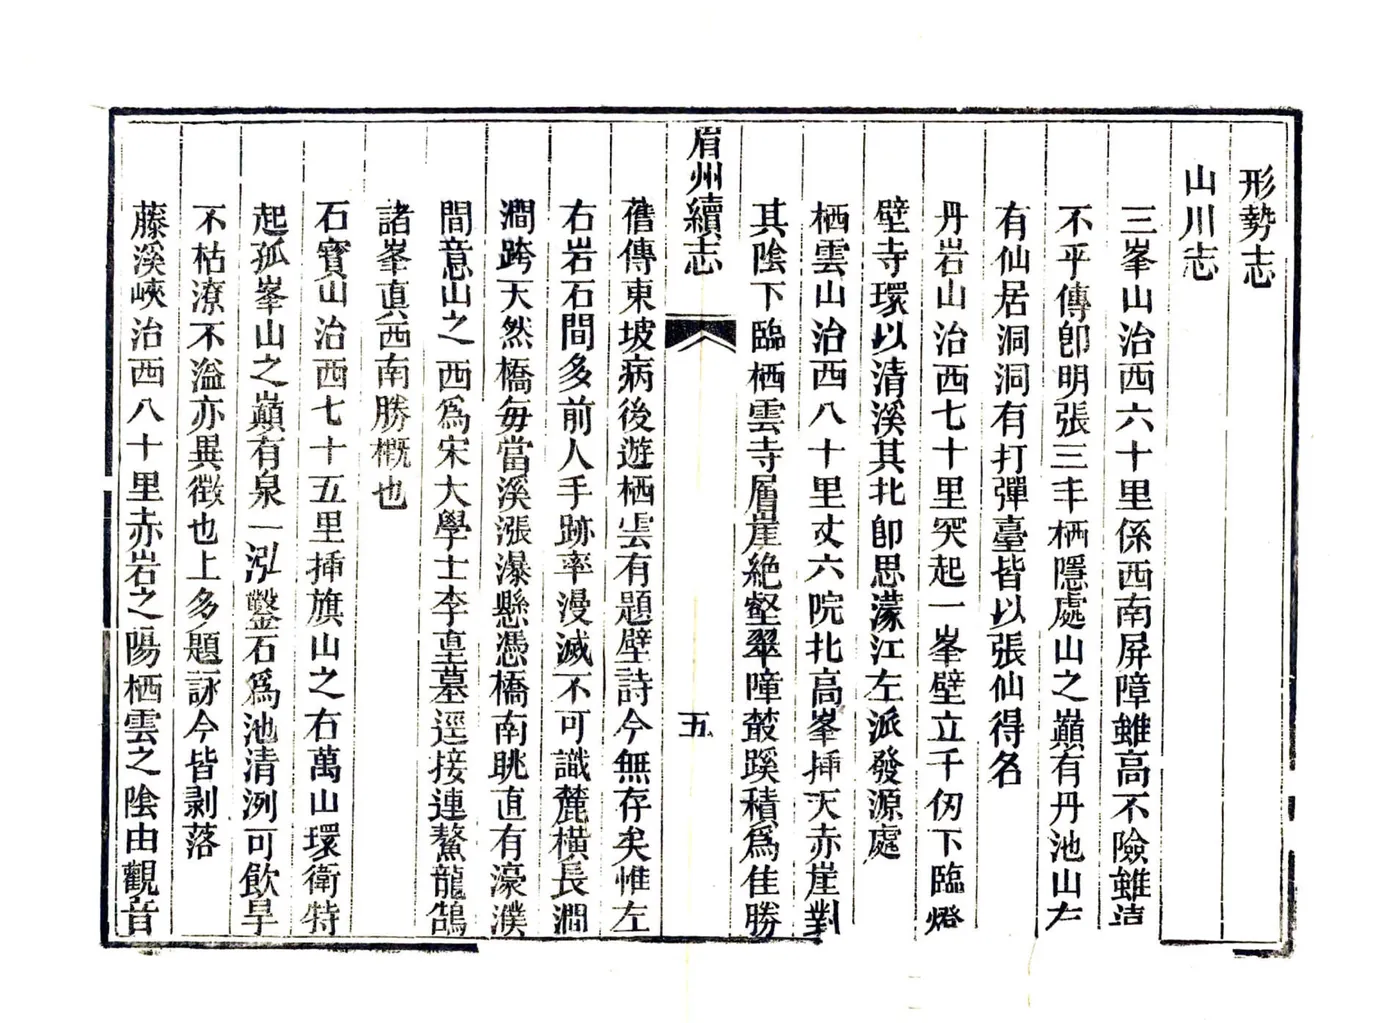 形勢志
山川志
三峯山治西六十里係西南屏障雖高不險雖陡
不平傳卽明張三丰栖隱處山之巔有丹池山左
有仙居洞洞有打彈臺皆以張仙得名
丹岩山治西七十里突起一峯壁立千仞下臨燈
壁寺環以清溪其北卽思濛江左派發源處
栖雲山治西八十里丈六院北高峯揷天赤崖對
其陰下臨栖雲寺層崖絶壑翠嶂叢蹊積爲佳勝
眉州續志
五
舊傳東坡病後遊栖雲有題壁詩今無存矣惟左
右岩石間多前人手跡率漫滅不可識麓橫長澗
澗跨天然橋每當溪漲瀑懸憑橋南眺直有濠濮
間意山之西爲宋大學士李𡌴墓逕接連鰲龍鵠
諸峯眞西南勝概也
石寶山治西七十五里揷旗山之右萬山環衛特
起孤峯山之巔有泉一泓鑿石爲池清洌可飲旱
不枯潦不溢亦異徵也上多題詠今皆剥落
藤溪峽治西八十里赤岩之陽栖雲之陰由觀音